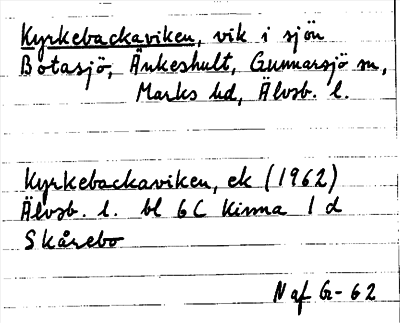 Kyrkebackaviken, vik i sjön
Botasjö, Änkeshult, Gunnarsjö sn,
Marks hd, Älvsb. l.
Kyrkebackaviken, ek (1962)
Älvsb. l. bl 6C Kinna 1 d
Skårebo
N af G-62